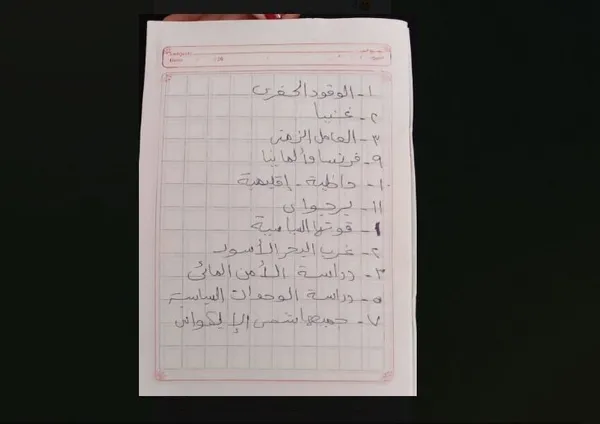 ١- الوقود الحفرى
٢- غنيا
٣- العامل الزمنى
٩- فرنسا وألمانيا
١٠- داخلية - إقليمية
١١- برجواى
١- قوتها السياسية
٢- غرب البحر الأسود
٣- دراسة الأمن المائى
٥- دراسة الوحدات السياسية
٧- جميعها شمس الإ